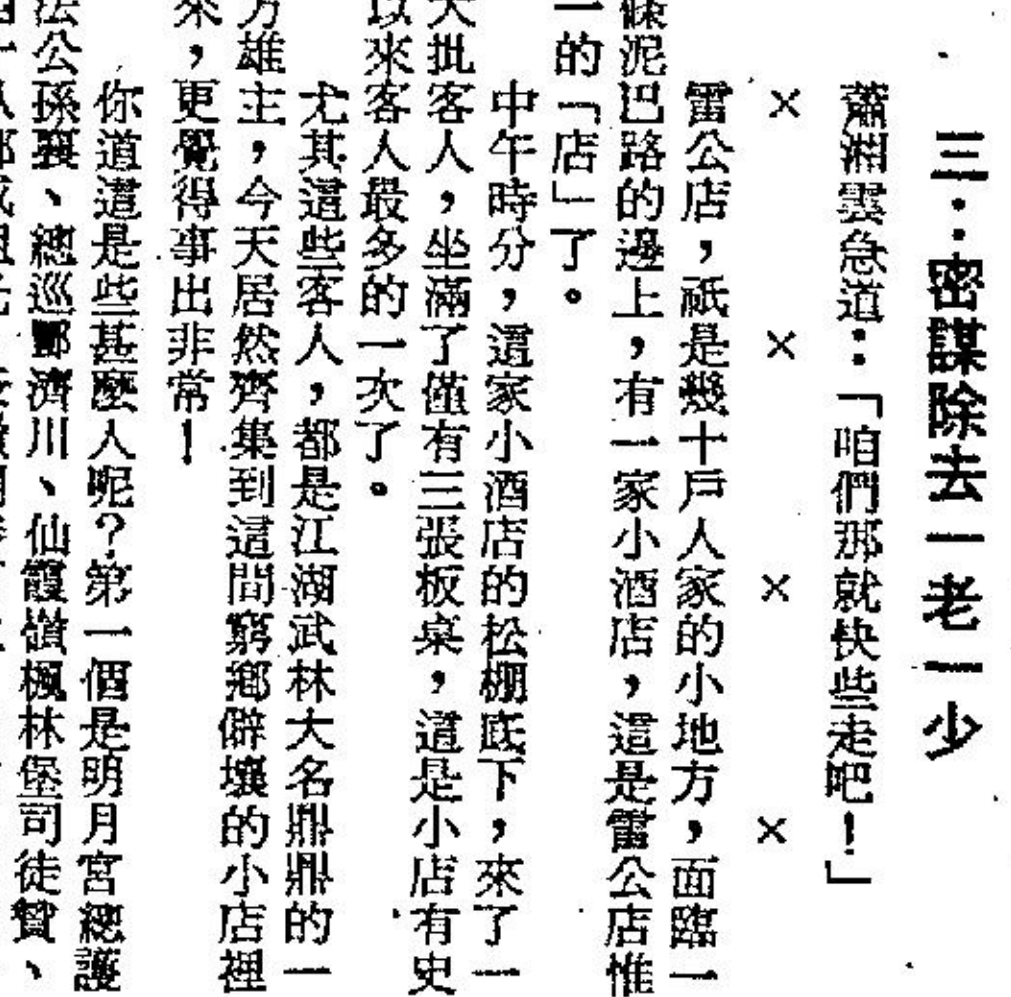 三：密謀除去一老一少
蕭湘雲急道：「咱們那就快些走吧！」
×　×　×　×
雷公店，祇是幾十戶人家的小地方，面臨一
條泥巴路的邊上，有一家小酒店，這是雷公店惟
一的「店」了。
中午時分，這家小酒店的松棚底下，來了一
大批客人，坐滿了僅有三張板桌，這是小店有史
以來客人最多的一次了。
尤其這些客人，都是江湖武林大名鼎鼎的一
方雄主，今天居然齊集到這間窮鄉僻壤的小店裡
來，更覺得事出非常！
你道這是些甚麼人呢？第一個是明月宮總護
法公孫襄、總巡酆濟川、仙霞嶺楓林堡司徒贊、